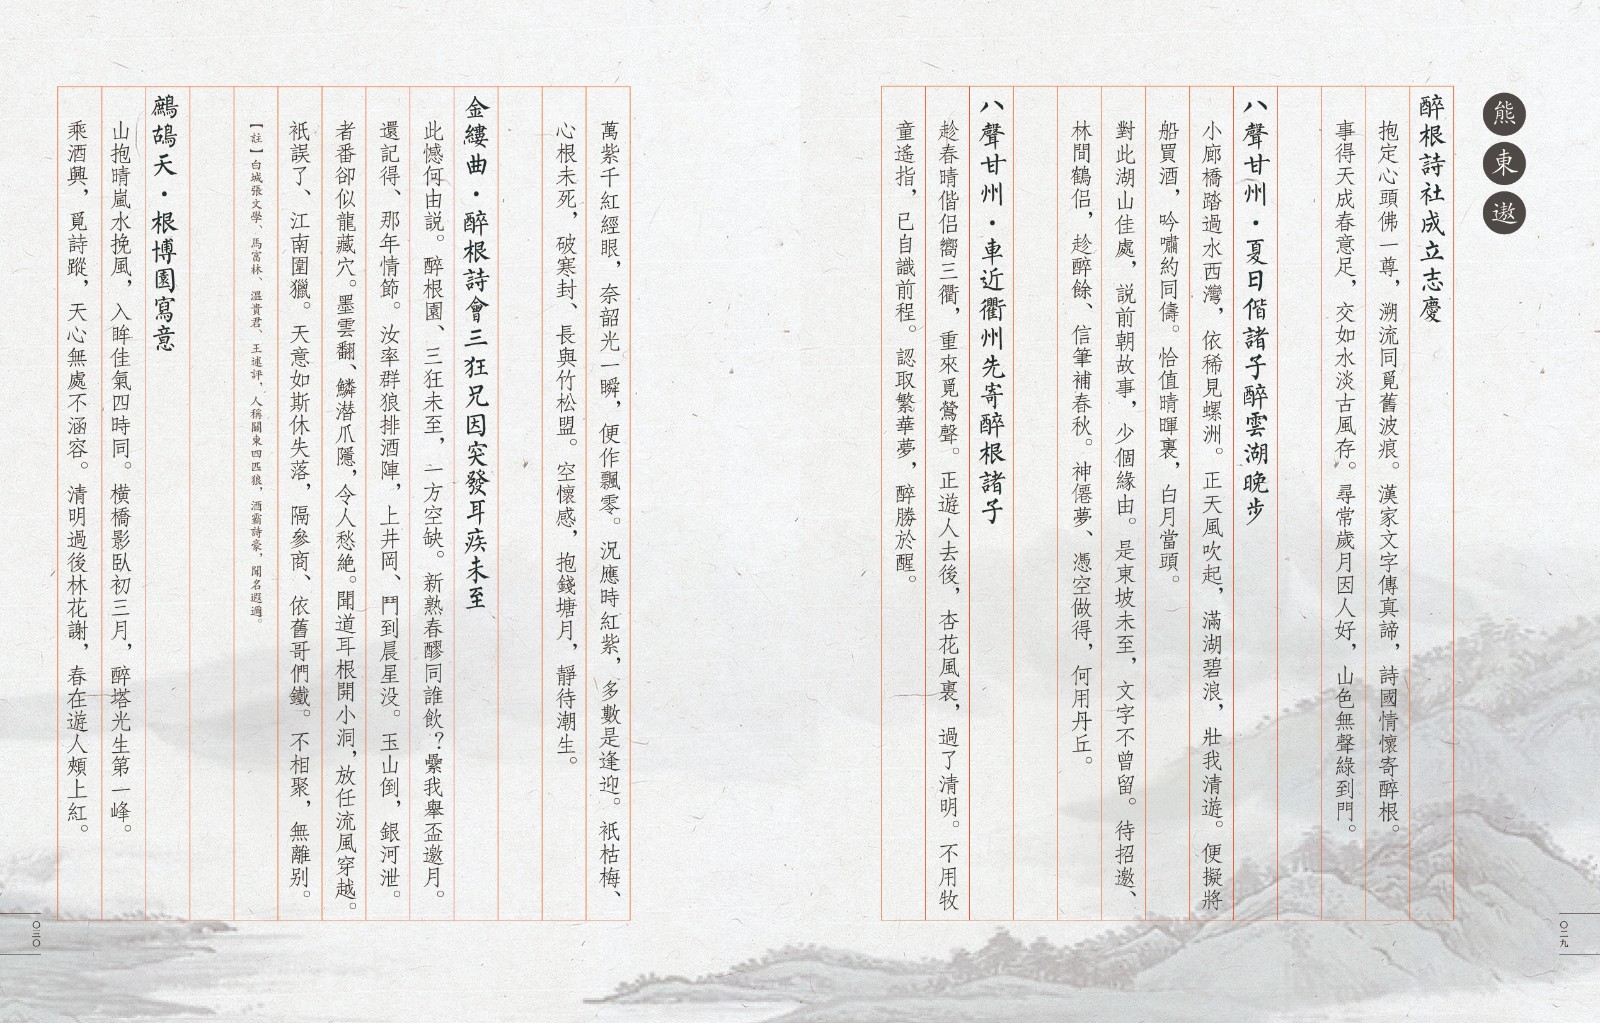 熊東遨
醉根詩社成立志慶
抱定心頭佛一尊，溯流同覓舊波痕。漢家文字傳真諦，詩國情懷寄醉根。
事得天成春意足，交如水淡古風存。尋常歲月因人好，山色無聲綠到門。
八聲甘州·夏日偕諸子醉雲湖晚步
小廊橋踏過水西灣，依稀見螺洲。正天風吹起，滿湖碧浪，壯我清遊。便擬將
船買酒，吟嘯約同儔。恰值晴暉裏，白月當頭。
對此湖山佳處，説前朝故事，少個緣由。是東坡未至，文字不曾留。待招邀、
林間鶴侶，趁醉餘、信筆補春秋。神僊夢、憑空做得，何用丹丘。
八聲甘州·車近衢州先寄醉根諸子
趁春晴偕侶嚮三衢，重來覓鶯聲。正遊人去後，杏花風裏，過了清明。不用牧
童遙指，已自識前程。認取繁華夢，醉勝於醒。
〇二九
萬紫千紅經眼，奈韶光一瞬，便作飄零。況應時紅紫，多數是逢迎。祇枯梅、
心根未死，破寒封、長與竹松盟。空懷感，抱錢塘月，靜待潮生。
金縷曲·醉根詩會三狂兄因突發耳疾未至
此憾何由説。醉根園、三狂未至，一方空缺。新熟春醪同誰飲？纍我舉盃邀月。
還記得、那年情節。汝率群狼排酒陣，上井岡、鬥到晨星没。玉山倒，銀河泄。
者番卻似龍藏穴。墨雲翻、鱗潛爪隱，令人愁絶。聞道耳根開小洞，放任流風穿越。
祇誤了、江南圍獵。天意如斯休失落，隔參商、依舊哥們鐵。不相聚，無離别。
【註】白城張文學、馬富林、溫貴君、王述評，人稱關東四匹狼，酒霸詩豪，聞名遐邇。
鷓鴣天·根博園寫意
山抱晴嵐水挽風，入眸佳氣四時同。橫橋影臥初三月，醉塔光生第一峰。
乘酒興，覓詩蹤，天心無處不涵容。清明過後林花謝，春在遊人頰上紅。
〇三〇